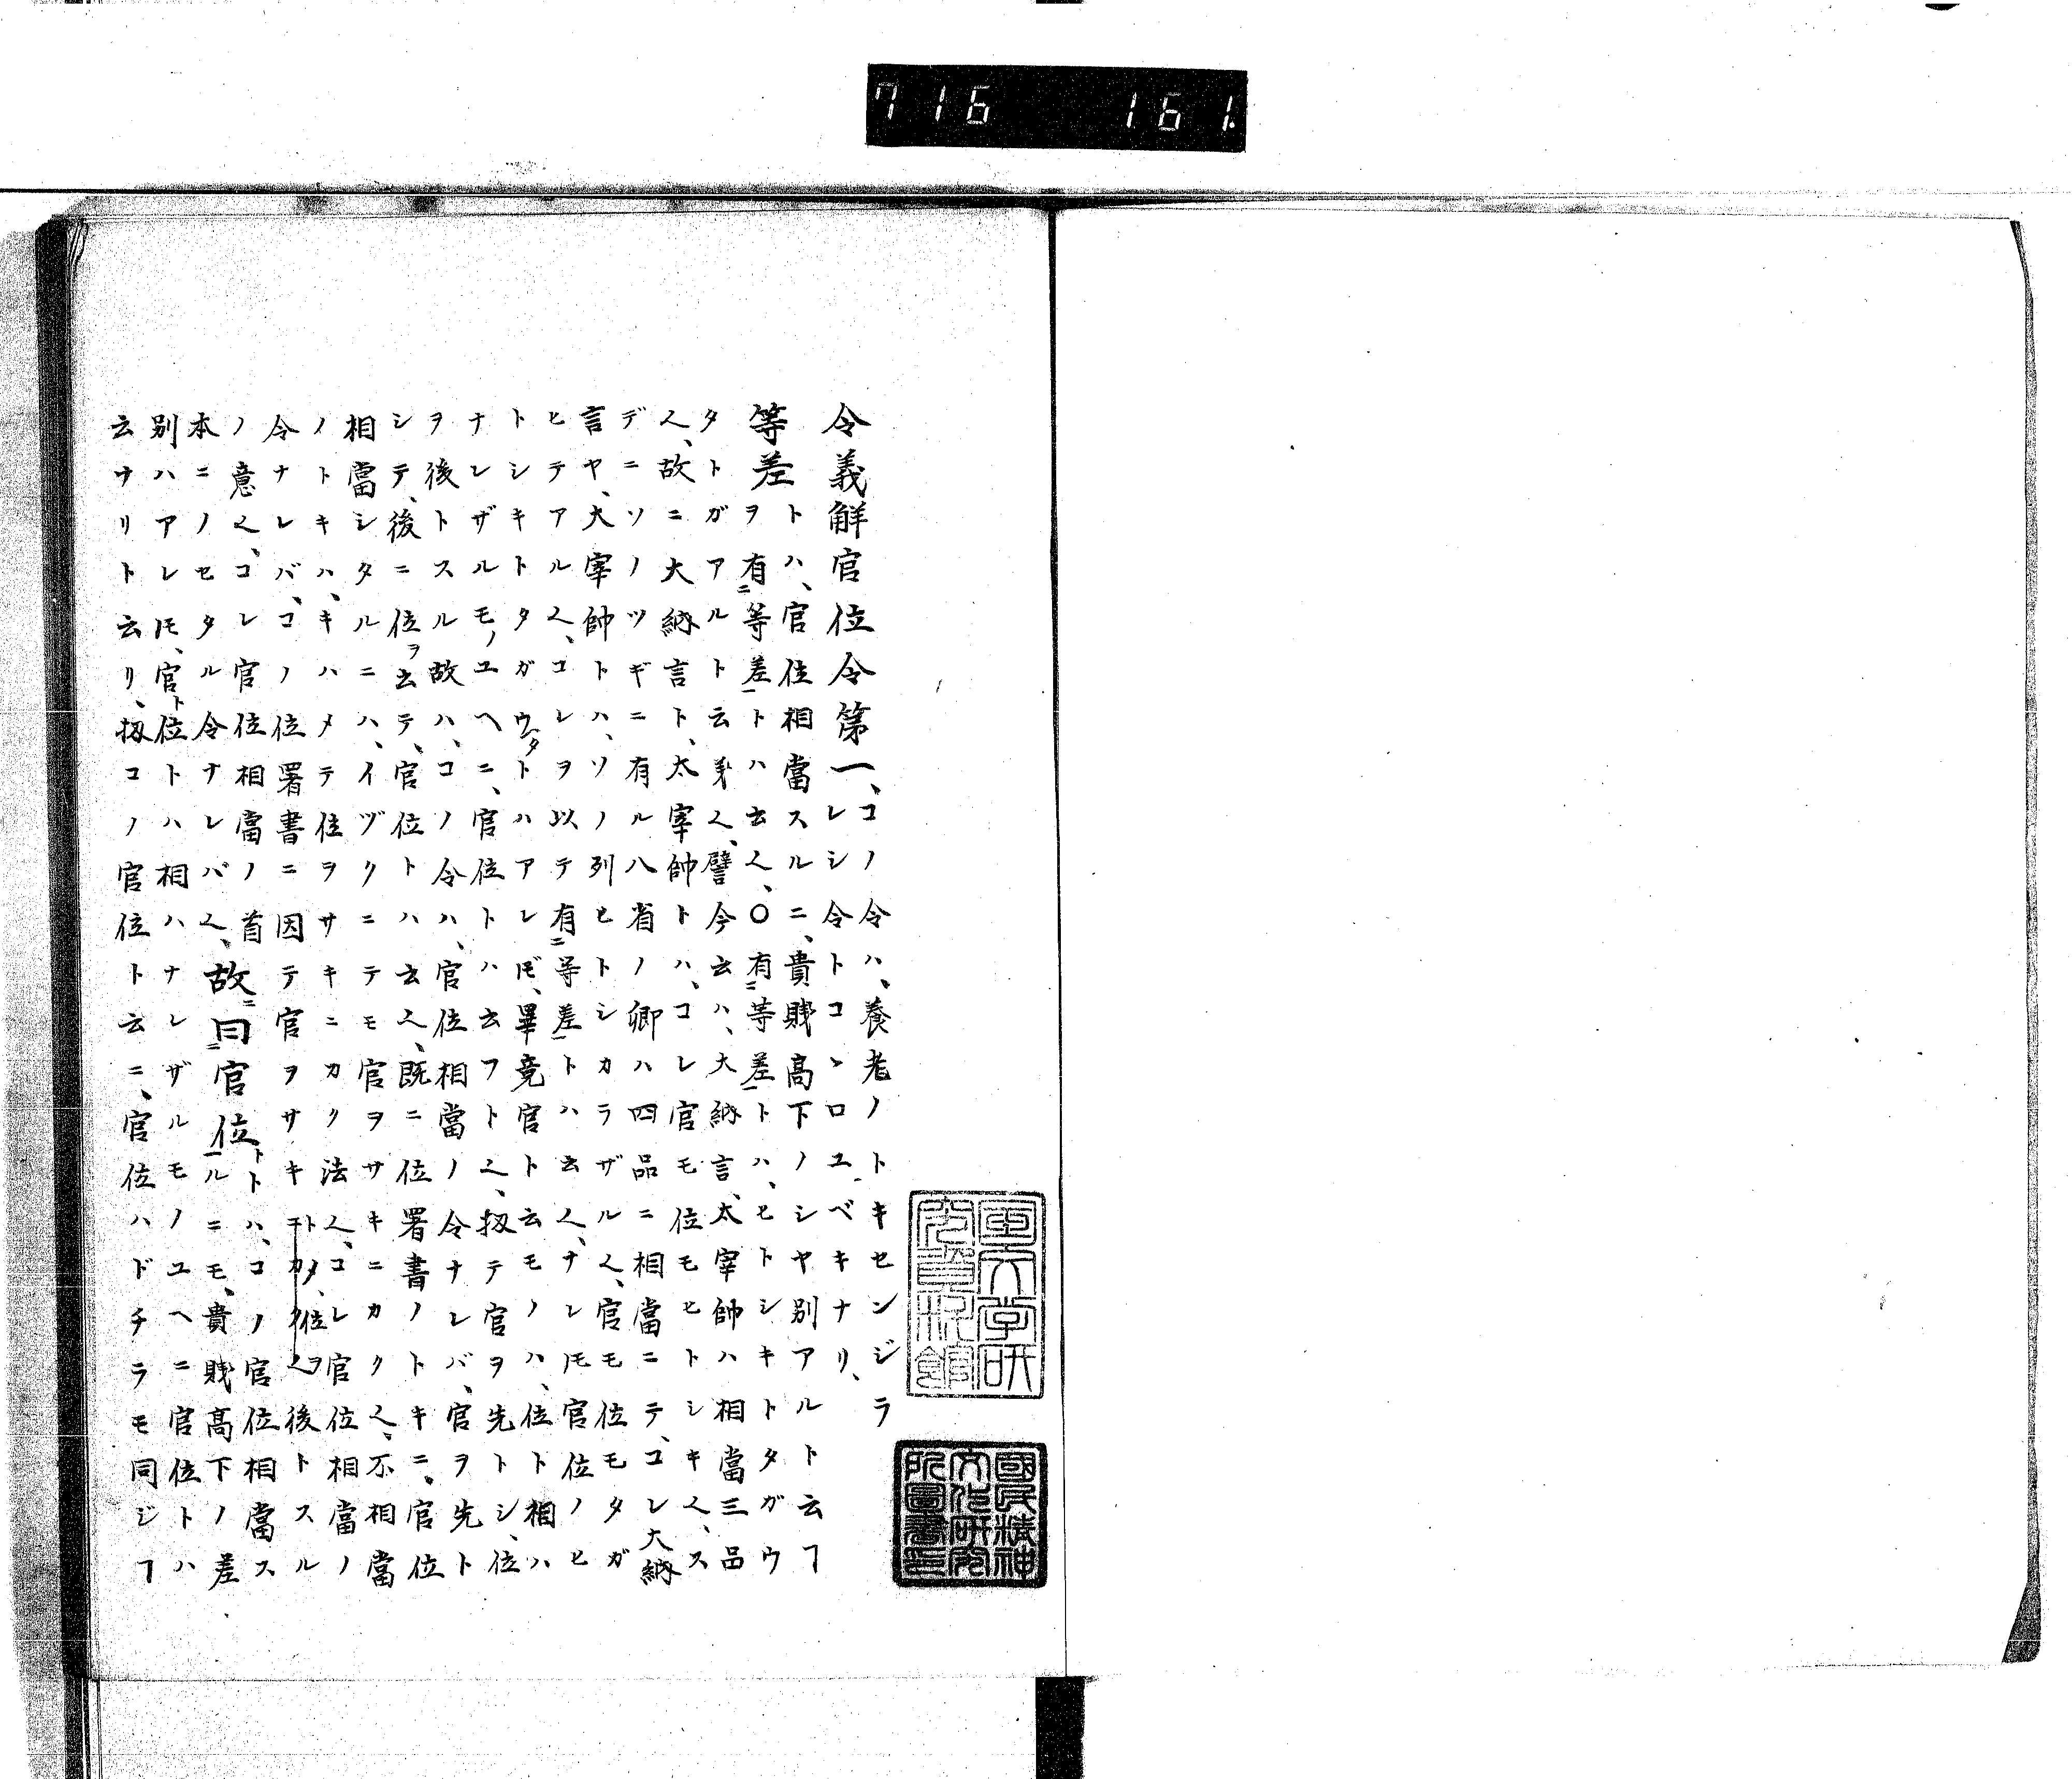 716 161.
令義解官位令第一、コノ令ハ、養老ノトキセンジラ
レシ令トコヽロユベキナリ、
等差トハ、官位相當スルニ、貴賤高下ノシヤ別アルト云ヿ
ヲ有ニ等差一トハ云也、○有ニ等差一トハ、ヒトシキトタガウ
タトガアルト云也、譬今云ハ、大納言、太宰帥ハ相當三品
也、故ニ大納言ト、太宰帥トハ、コレ官モ位モヒトシキ也、ス
デニソノツギニ有ル八省ノ卿ハ四品ニ相當ニテ、コレ大納
言ヤ、大宰帥トハ、ソノ列ヒトシカラザル也、官モ位モタガ
ヒテアル也、コレヲ以テ有ニ等差一トハ云也、ナレ𪜈官位ノヒ
トシキトタガウタトハアレ𪜈、畢竟官ト云モノハ、位ト相ハ
ナレザルモノユヘニ、官位トハ云フト也、扨テ官ヲ先トシ、位
ヲ後トスル故ハ、コノ令ハ、官位相當ノ令ナレバ、官ヲ先ト
シテ、後ニ位ヲ云テ、官位トハ云也、既ニ位署書ノトキニ、官位
相當シタルニハ、イヅクニテモ官ヲサキニカク也、不相當
ノトキハ、キハメテ位ヲサキニカク法也、コレ官位相當ノ
令ナレバ、コノ位署書ニ因テ官ヲサキトタ、位ヲ後トスル
ノ意也、コレ官位相當ノ首
本ニノセタル令ナレバ也、故ニ曰ニ官位一トハ、コノ官位相當ス
ルニモ、貴賤高下ノ差
別ハアレ𪜈、官ト位トハ相ハナレザルモノユヘニ官位トハ
云ナリト云リ、扨コノ官位ト云ニ、官位ハドチラモ同ジヿ
国文学研
究資料館
國民精神
文化研究
所圖書印